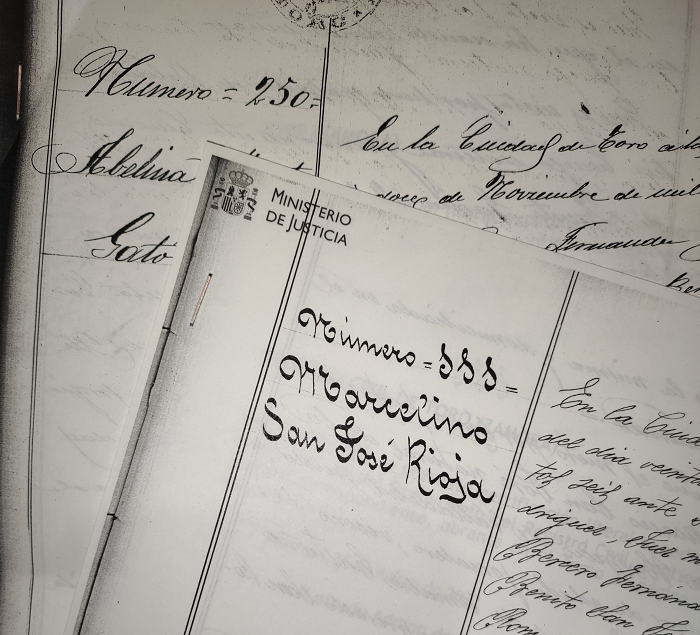 Numero = 250 =
Abelina
Gato
En la Ciudad de Toro a la
doce de Noviembre de mil
Fernandez
MINISTERIO
DE JUSTICIA
Número = 555 =
Marcelino
San José Rioja
En la Ciuda
del dia veinti
tos seis ante
driguez, Juez m
Bercero Fernánd
Benito
Rom